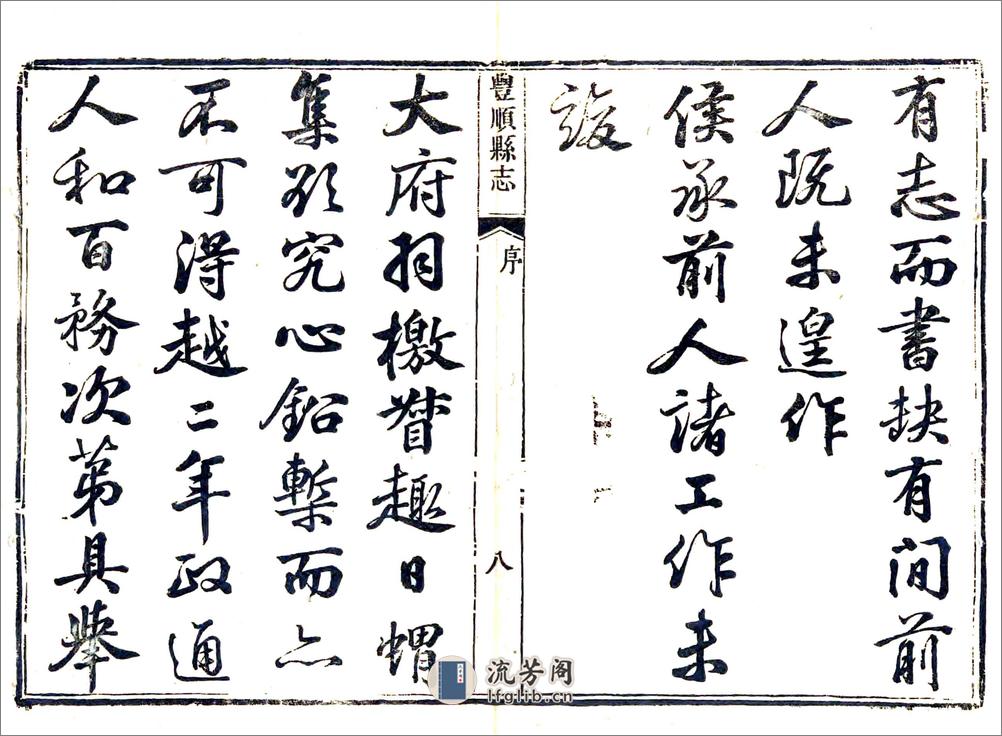 有志而書缺有間前
人既未遑作
侯承前人諸工作未
竣
豐順縣志
序
八
大府羽檄督趣日蝟
集欲究心鉛槧而亦
不可得越二年政通
人和百務次第具舉
流芳阁
lfglib.cn